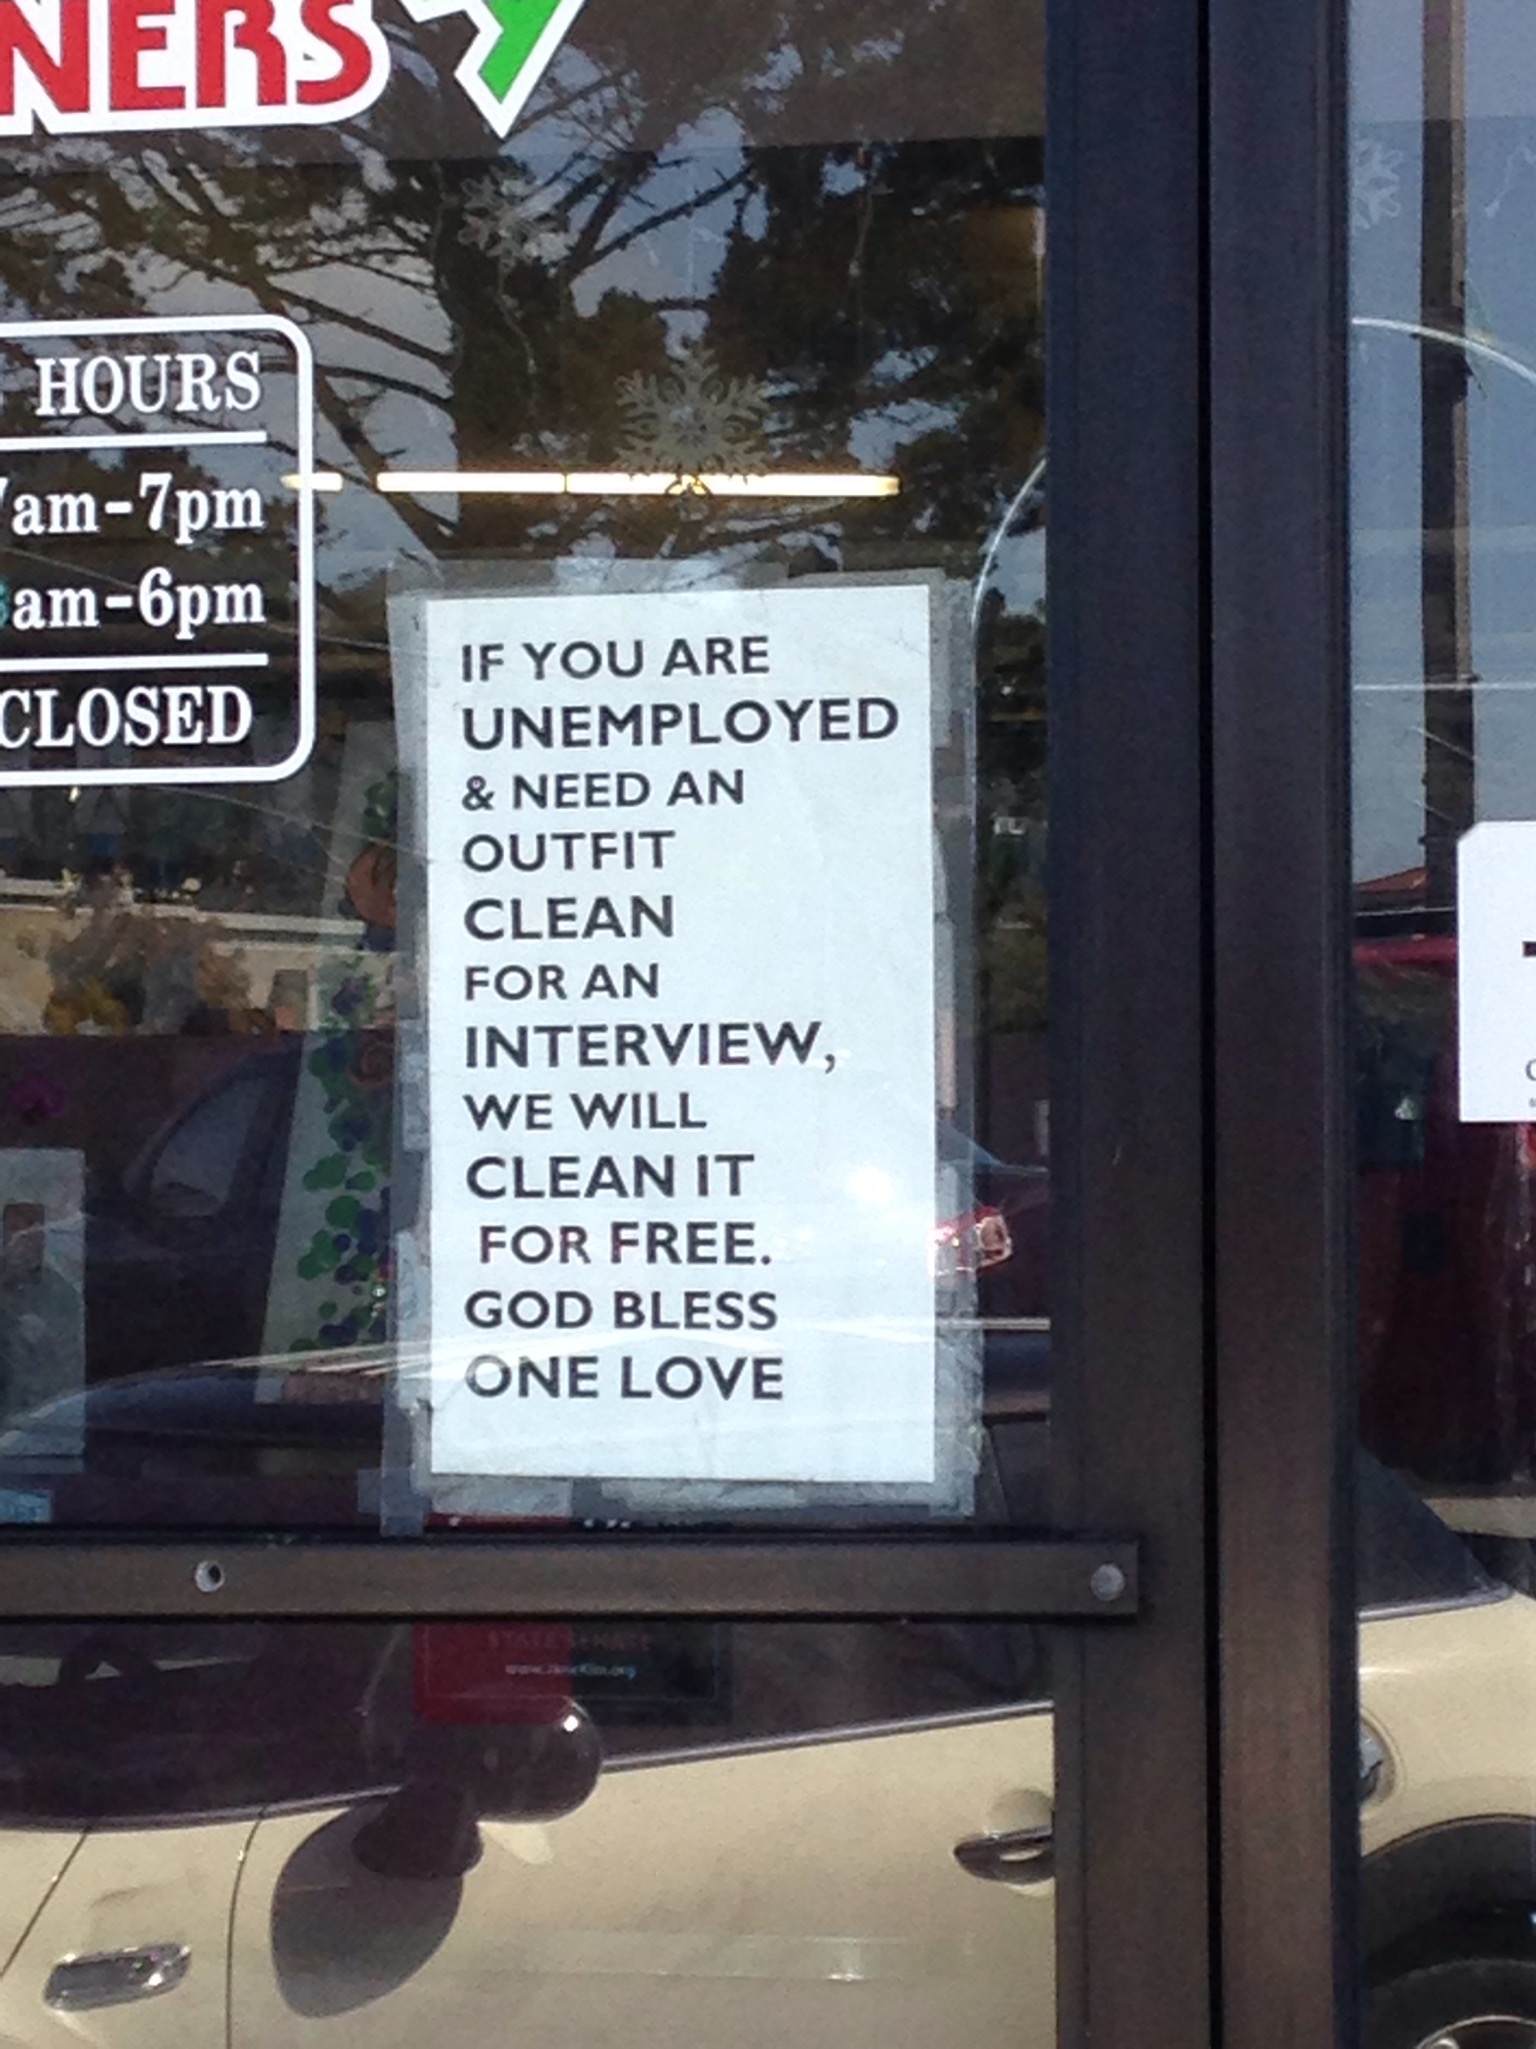 NERS
HOURS
7am-7pm
am-6pm
CLOSED
IF YOU ARE
UNEMPLOYED
& NEED AN
OUTFIT
CLEAN
FOR AN
INTERVIEW,
WE WILL
CLEAN IT
FOR FREE.
GOD BLESS
ONE LOVE
STATE SENATE